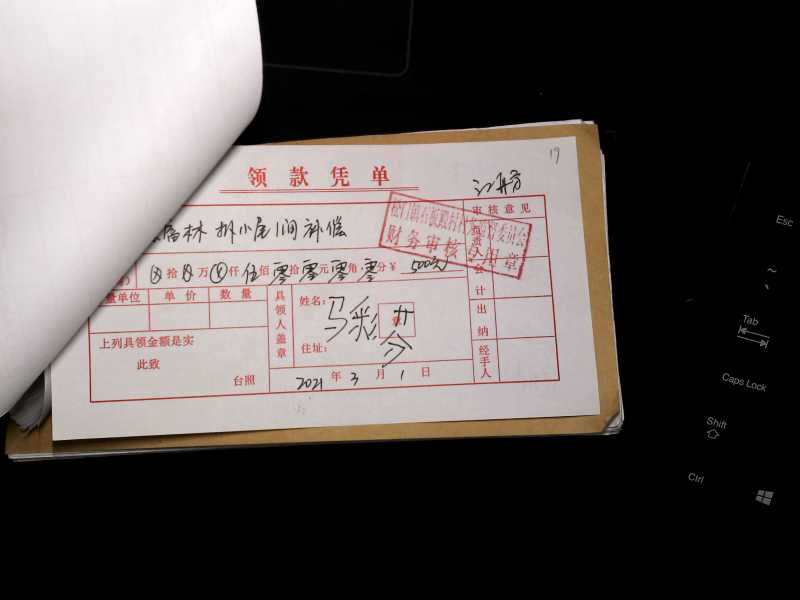 19
领款凭单
审核意见
林 拆小屋1间补偿
财务审核专用章
负责人
拾 万 仟伍佰零拾零元零角零分¥ 500元
会计
量单位 单价 数量
具领人盖章
姓名: 马彩
章
出纳
上列具领金额是实
此致
住址:
经手人
台照
2021年3月1日
Esc
~
Tab
Caps Lock
Shift
Ctrl